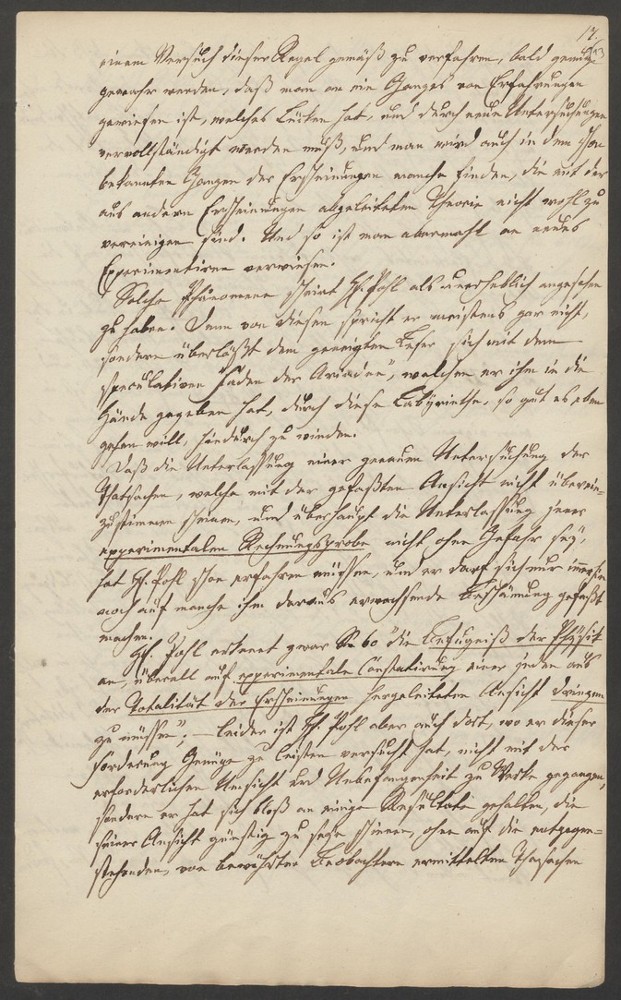 17.
einem Versuch dieser Regel gemäß zu verfahren, bald genug
gewahr werden, daß man an ein Ganzes von Erfahrungen
gewiesen ist, welches Lücken hat, und durch neue Untersuchungen
vervollständigt werden muß, und man wird auch in dem schon
bekannten Ganzen der Erscheinungen manche finden, die mit der
aus andern Erscheinungen abgeleiteten Theorie nicht wohl zu
vereinigen sind. Und so ist man abermahl an neues
Experimentiren verwiesen.
Solche Phänomene scheint H. Pohl als unerheblich angesehen
zu haben. Denn von diesen spricht er meistens gar nicht,
sondern überläßt dem geneigten Leser, sich mit dem
speculativen Faden der Ariadne", welchen er ihm in die
Hände gegeben hat, durch diese Labyrinthe, so gut es eben
gehen will, hindurch zu winden.
Daß die Unterlassung einer genauen Untersuchung der
Thatsachen, welche mit der gefaßten Ansicht nicht überein=
zustimmen scheinen, und überhaupt die Unterlassung jener
experimentalen Rechnungsprobe nicht ohne Gefahr sey,
hat H. Pohl schon erfahren müssen, und er darf sich nur immerhin
noch auf manche ihm daraus erwachsende Beschämung gefaßt
machen.
H. Pohl erkennt zwar S. 60 "die Befugniß der Physik
an, überall auf experimentale Constatirung einer jeden aus
der Totalität der Erscheinungen hergeleiteten Ansicht dringen
zu müssen"; – leider ist H. Pohl aber auch dort, wo er dieser
Forderung Genüge zu leisten versucht hat, nicht mit der
erforderlichen Umsicht und Unbefangenheit zu Werke gegangen,
sondern er hat sich bloß an einige Resultate gehalten, die
seiner Ansicht günstig zu seyn schienen, ohne auf die entgegen=
stehenden, von bewährten Beobachtern ermittelten Thatsachen